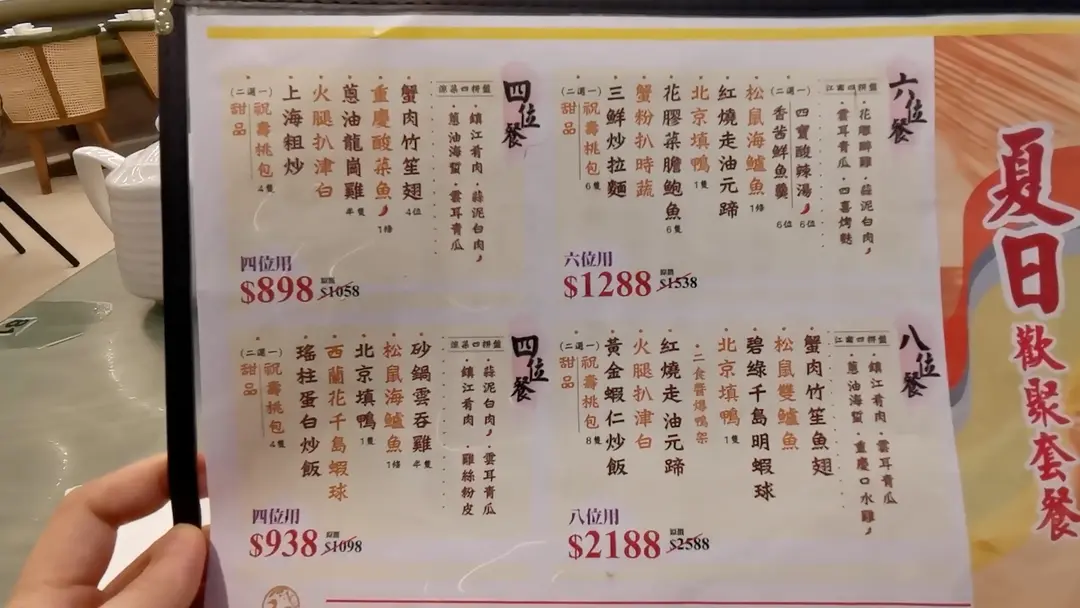 夏日歡聚套餐
六位餐
江南四拼盤
·花雕醉雞·蒜泥白肉
·雲耳青瓜·四喜烤麩
(二選一)
四寶酸辣湯 6位
香茜鮮魚羹 6位
松鼠海鱸魚 1條
北京填鴨 1隻
紅燒走油元蹄
花膠菜膽鮑魚 6隻
蟹粉扒時蔬
三鮮炒拉麵
(二選一)
祝壽桃包 6隻
甜品
六位用
$1288 原價 $1538
四位餐
涼菜四拼盤
·鎮江肴肉·蒜泥白肉
·蔥油海蜇·雲耳青瓜
蟹肉竹笙翅 4位
重慶酸菜魚 1條
蔥油龍崗雞 半隻
火腿扒津白
上海粗炒
(二選一)
祝壽桃包 4隻
甜品
四位用
$898 原價 $1058
八位餐
江南四拼盤
·鎮江肴肉·雲耳青瓜
·蔥油海蜇·重慶口水雞
蟹肉竹笙魚翅
松鼠雙鱸魚
碧綠千島明蝦球
北京填鴨 1隻
·二食醬爆鴨架
紅燒走油元蹄
火腿扒津白
黃金蝦仁炒飯
(二選一)
祝壽桃包 8隻
甜品
八位用
$2188 原價 $2588
四位餐
涼菜四拼盤
·蒜泥白肉·雲耳青瓜
·鎮江肴肉·雞絲粉皮
砂鍋雲吞雞 半隻
松鼠海鱸魚 1條
北京填鴨 1隻
西蘭花千島蝦球
瑤柱蛋白炒飯
(二選一)
祝壽桃包 4隻
甜品
四位用
$938 原價 $1098